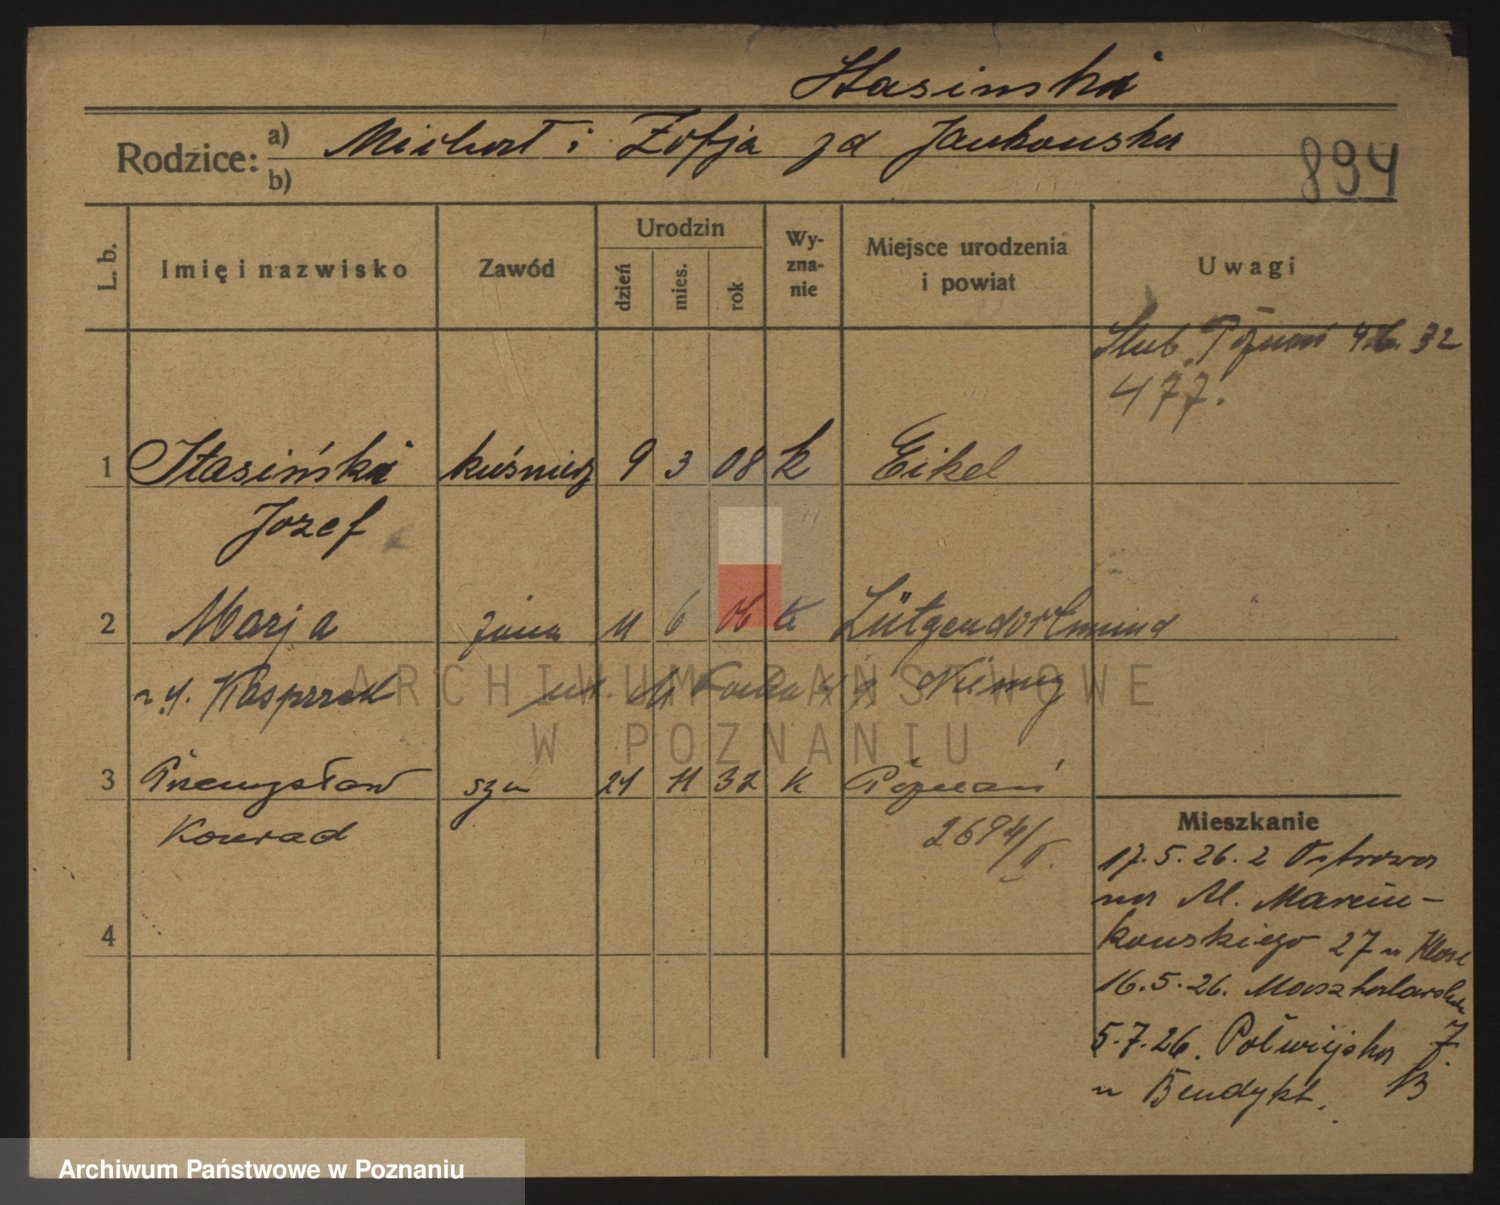 Stasinski
Rodzice: a) Michał i Zofja zd Jankowska
b)
894
L. b.
Imię i nazwisko
Zawód
Urodzin
dzień
mies.
rok
Wy-
zna-
nie
Miejsce urodzenia
i powiat
Uwagi
Ślub. Poznań 4.6.32
477.
1 Stasiński kuśnierz 9 3 08 k Eikel
Józef
2 Marja żona 11 6 06 k Lütgendortmund
Kasprzak Niemcy
3 Przemysław syn 21 11 32 k Poznań
Konrad 2694/
4
Mieszkanie
17.5.26. z Ostrowa
na M. Marcin-
kowskiego 27 u Klose
16.5.26.
5.7.26. Półwiejska 7
u Bendykt. B
ARCHIWUM PAŃSTWOWE
W POZNANIU
Archiwum Państwowe w Poznaniu